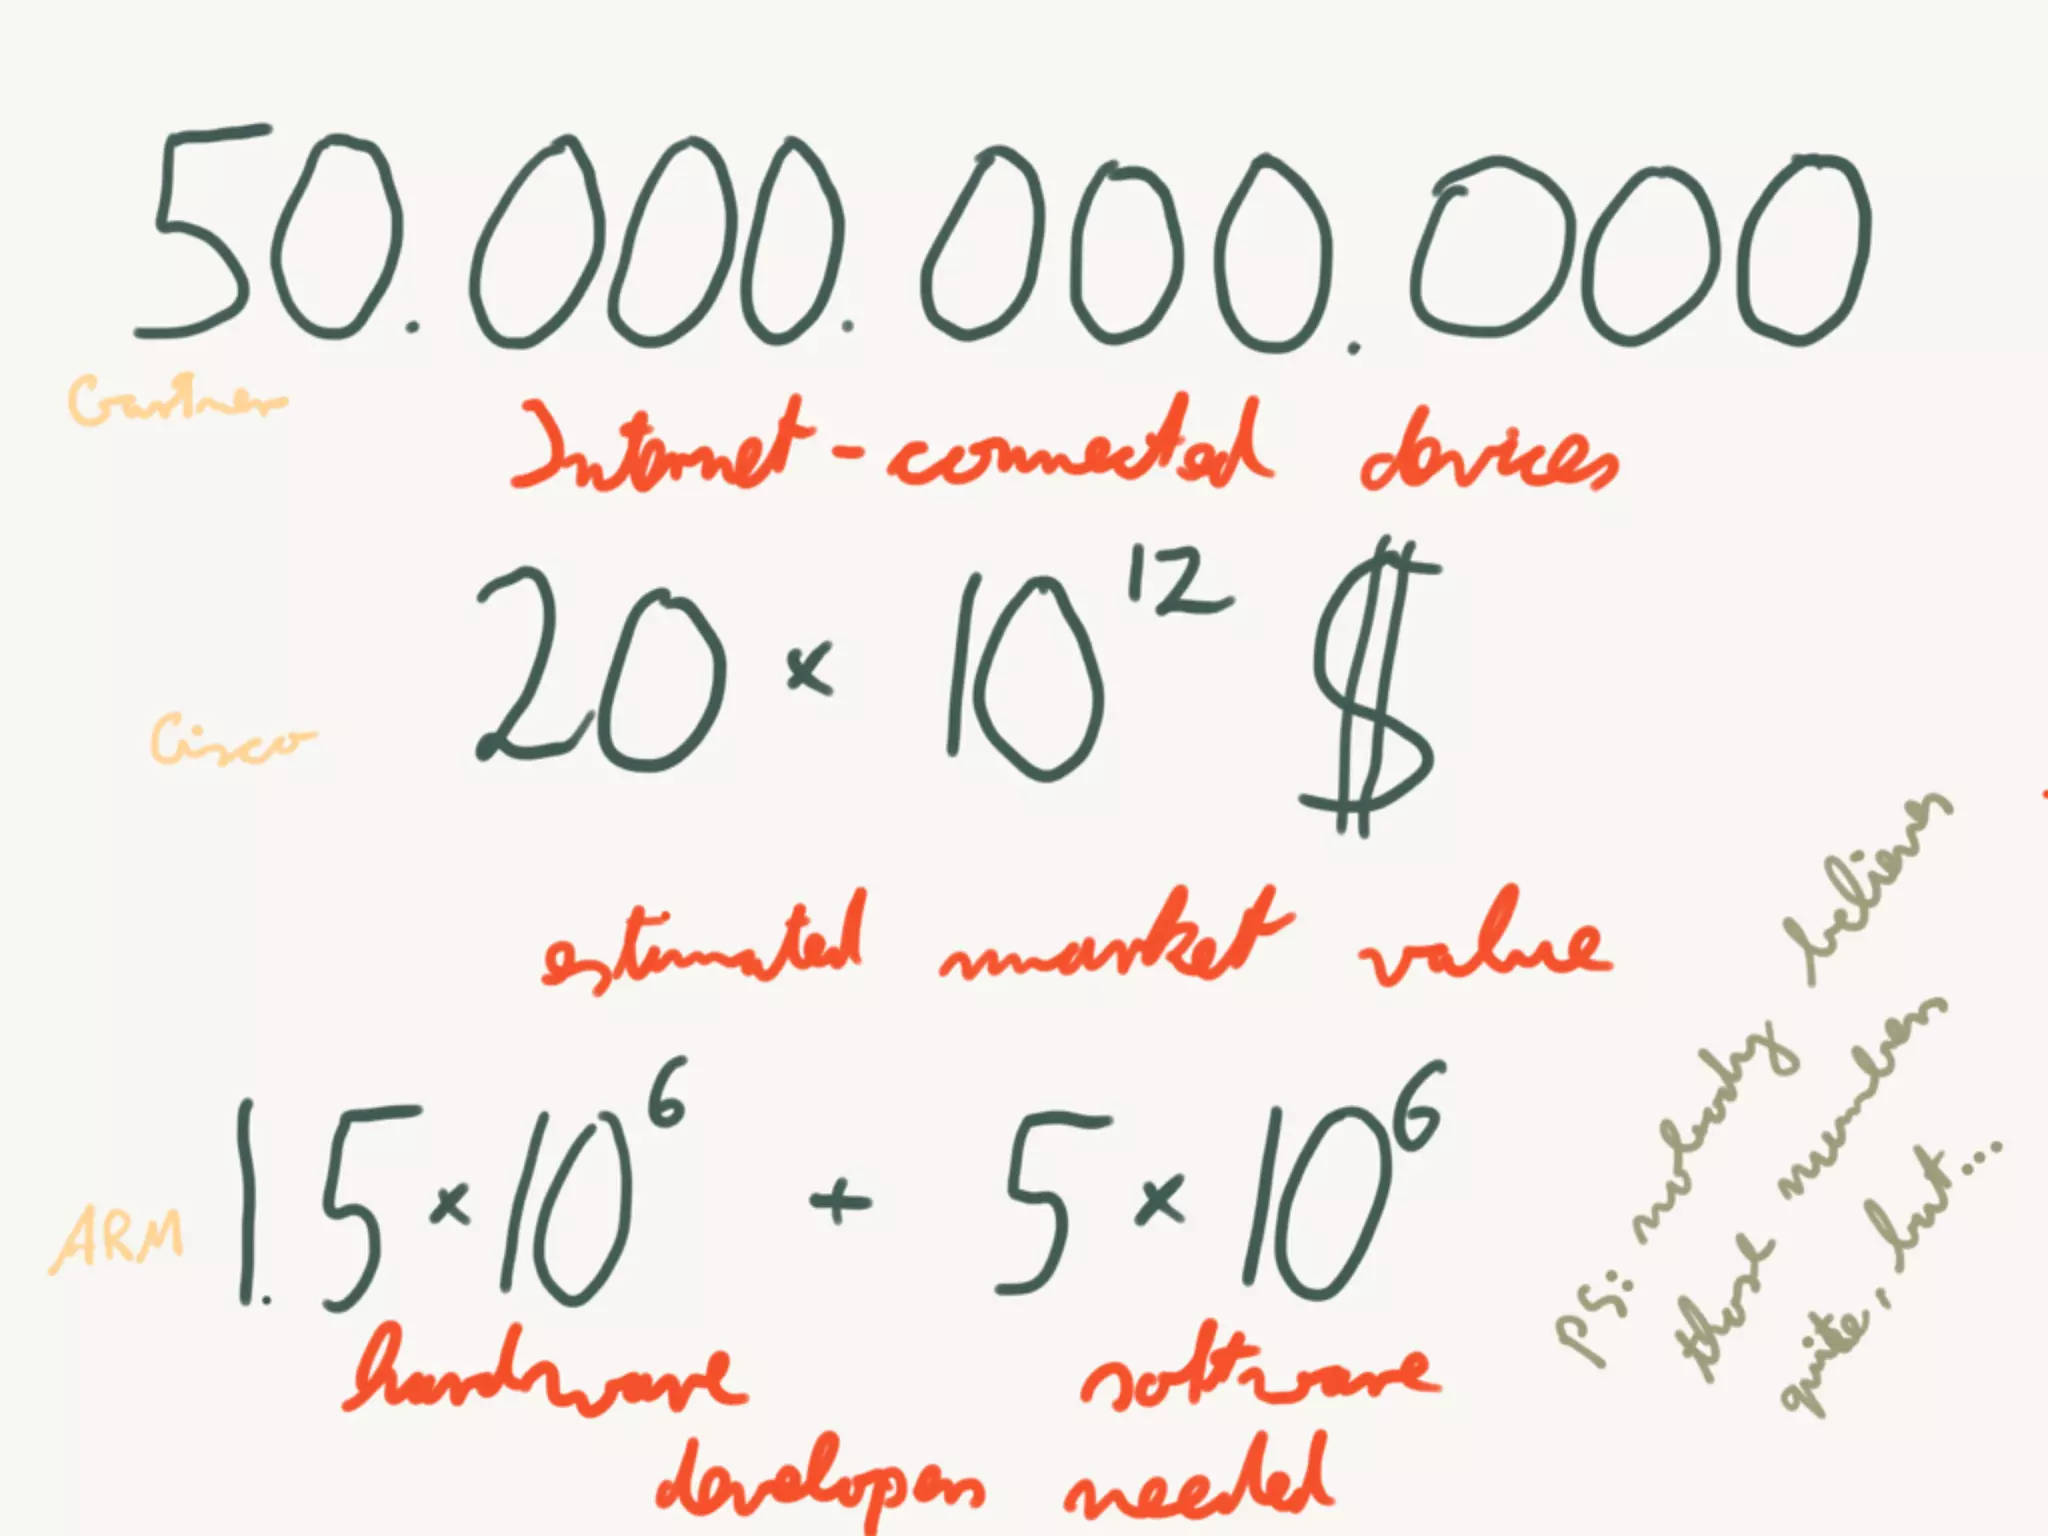 50.000.000.000
Gartner
Internet-connected devices
20 × 10¹² $
Cisco
estimated market value
1.5 × 10⁶ + 5 × 10⁶
ARM
hardware software
developers needed
PS: nobody believes
those numbers
quite, but...